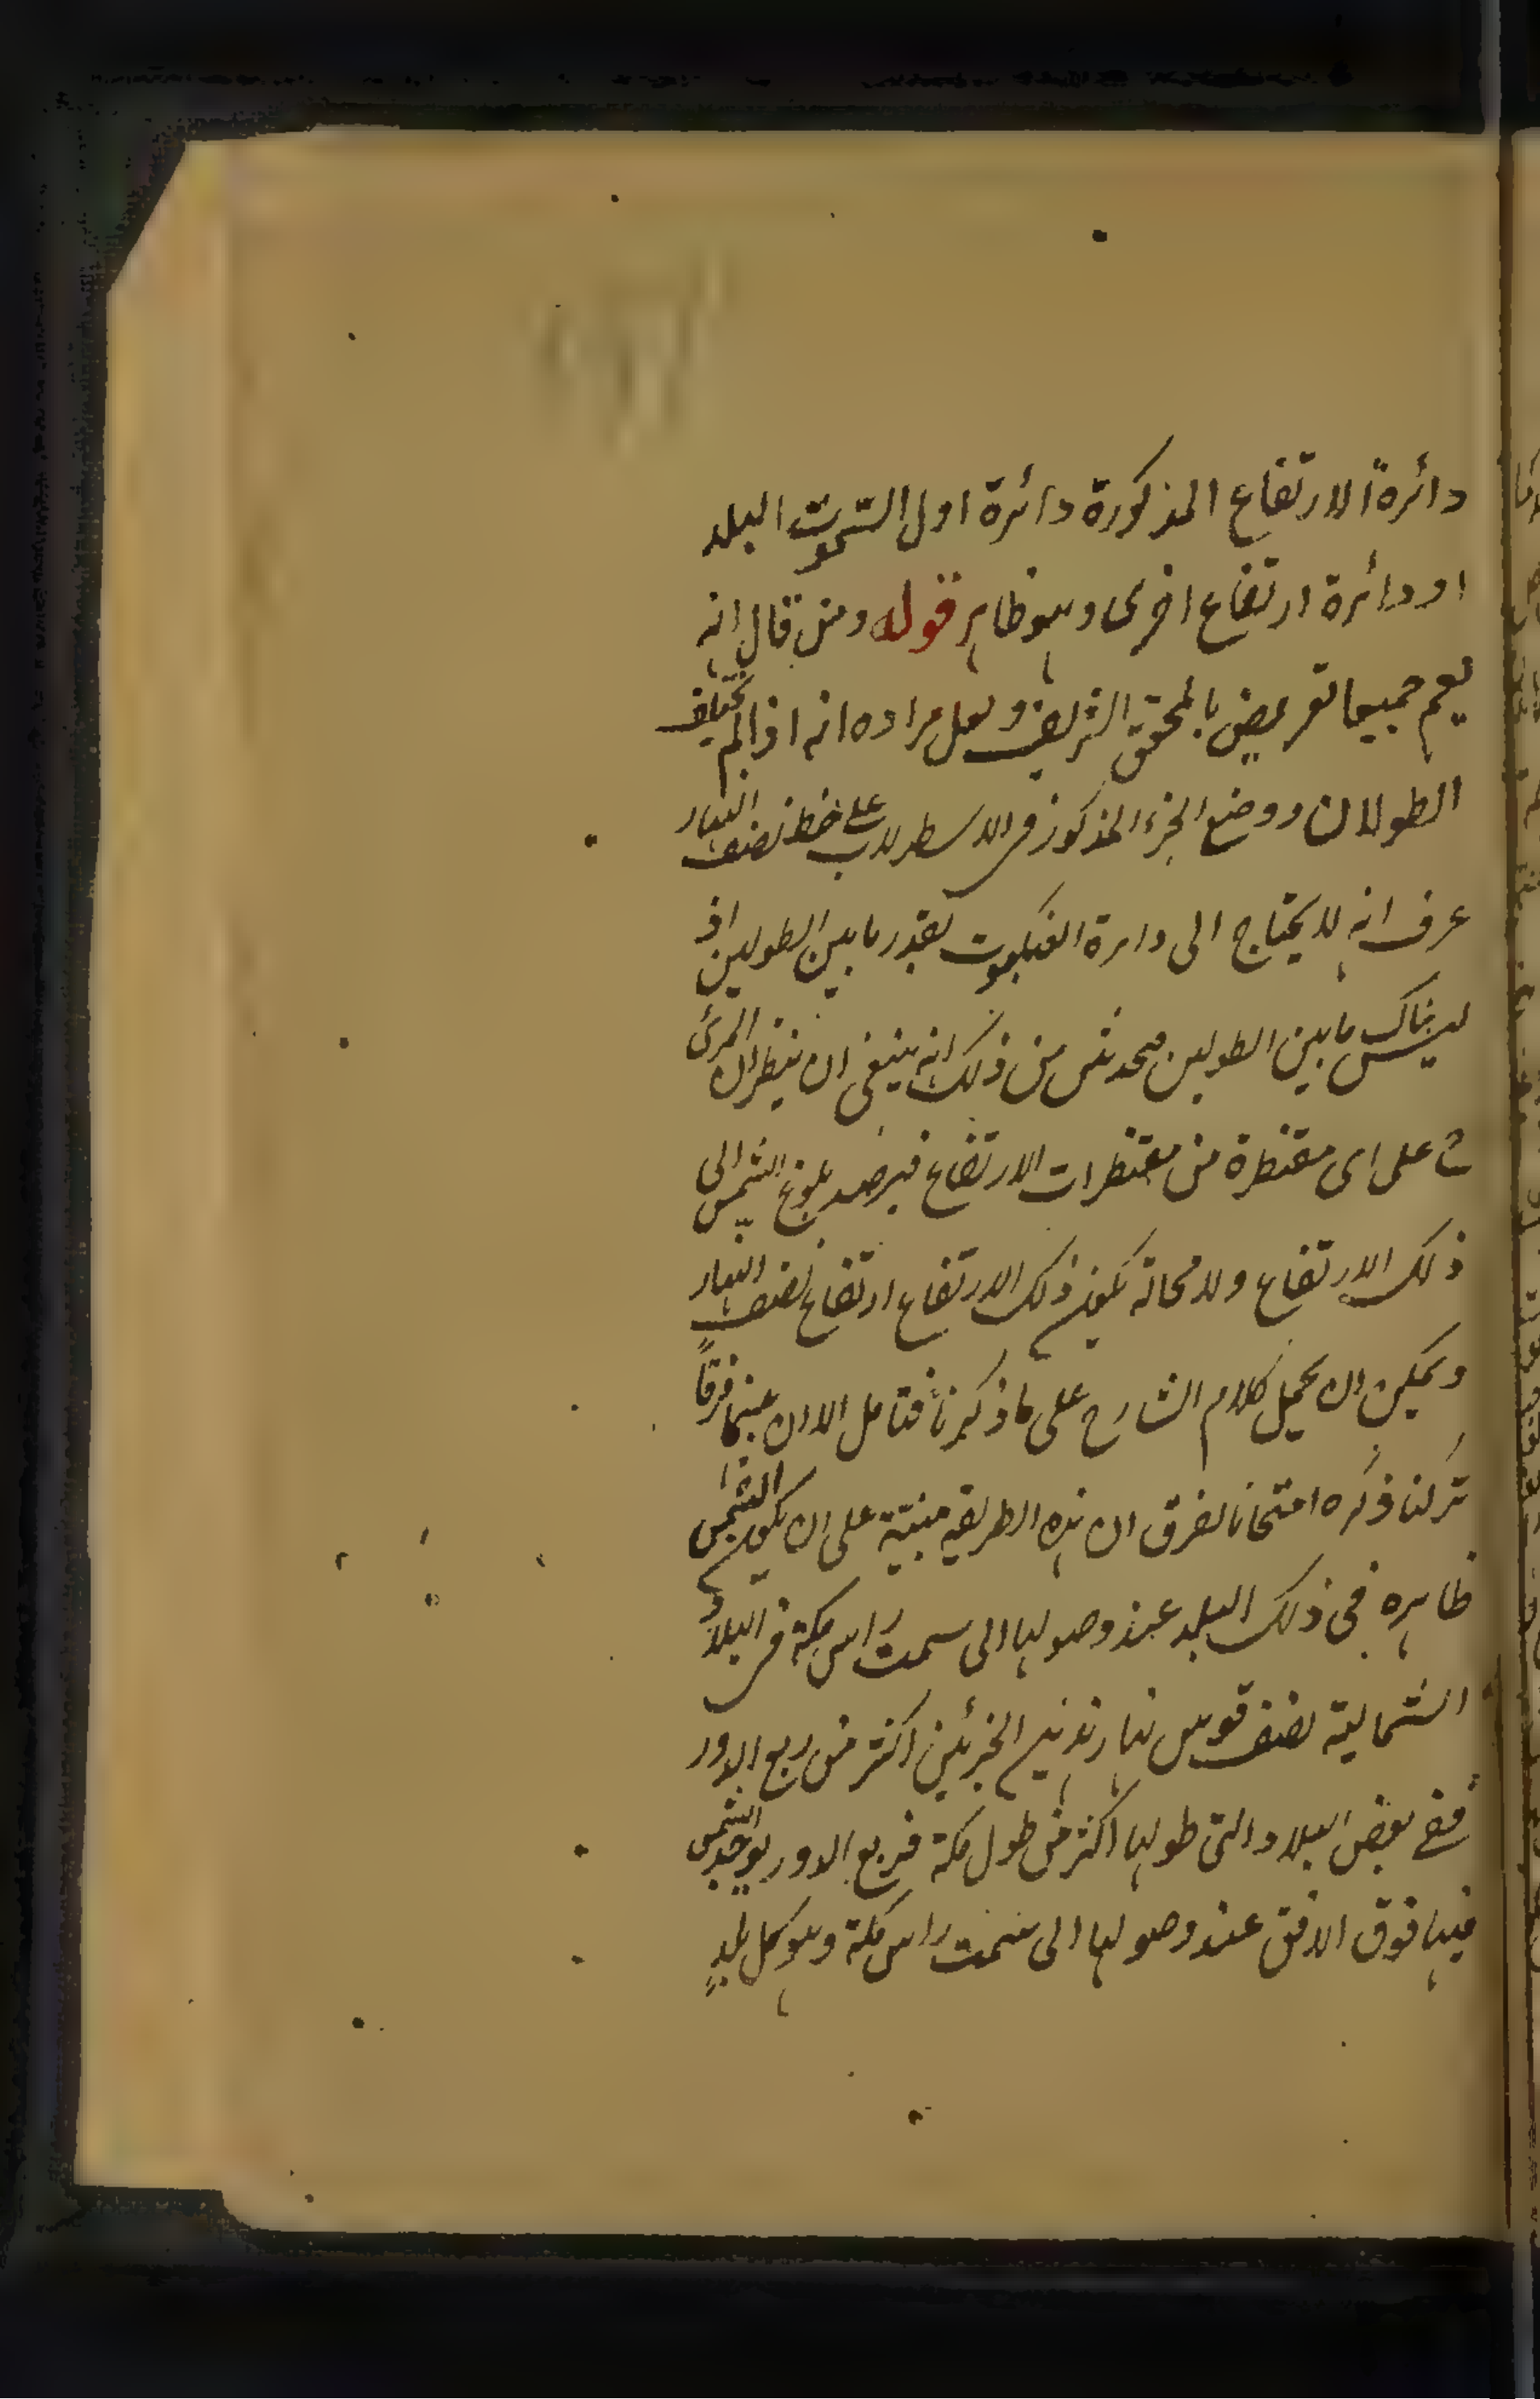 دائرة الارتفاع المذكورة دائرة اول السموت البلد
او دائرة ارتفاع اخرى وهو ظاهر قوله ومن قال انه
يعم جميعا تعريض بالمحقق الشريف ولعل مراده انه اذا لم يختلف
الطولان ووضع الجزء المذكور فى الاسطرلاب على خط نصف النهار
عرف انه لا يحتاج الى دايرة العنكبوت بقدر ما بين الطولين اذ
ليس هناك ما بين الطولين من ذلك انه ينبغى ان ينظر ان المرئ
ح على اى مقنطرة من مقنطرات الارتفاع فيرصد بلوغ الشمس الى
ذلك الارتفاع ولا محالة يكون ذلك الارتفاع ارتفاع نصف النهار
ويمكن ان يحمل كلام الشارح على ما ذكرنا فتامل الا ان بينهما فرقاً
تركنا ذكره امتحانا لفرق ان هذه الطريقة مبنية على ان يكون الشمس
ظاهره فى ذلك البلد عند وصولها الى سمت راس مكة فى البلاد
الشمالية نصف قوس نهار هذين الجزئين اكثر من ربع الدور
ففى بعض البلاد التى طولها اكثر من طول مكة فربع الدور يوجد الشمس
فيها فوق الافق عند وصولها الى سمت راس مكة وهو كل بلدٍ